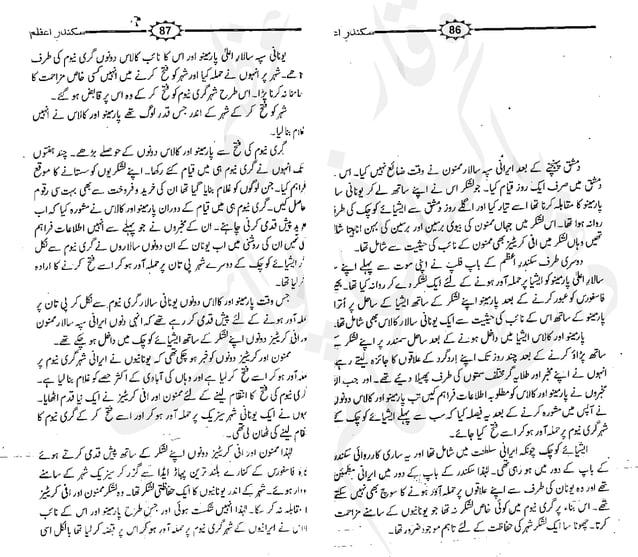 سکندر اعظم
86
دمشق پہنچنے کے بعد ایرانی سپہ سالار ممنون نے وقت ضائع نہیں کیا۔ اس
دمشق میں صرف ایک روز قیام کیا۔ جو لشکر اس نے اپنے ساتھ لے کر یونانی سا
پارمینو کا مقابلہ کرنا تھا اسے تیار کیا اور اگلے روز دمشق سے ایشیائے کوچک کی طرف
روانہ ہوا تھا۔ اس لشکر میں جہاں ممنون کی بیوی برسین اور برسین کی بہن شامل
تھیں وہاں لشکر میں انی کریٹیز بھی ممنون کے نائب کی حیثیت سے شامل تھا۔
دوسری طرف سکندر اعظم کے باپ فلپ نے اپنی موت سے پہلے اپنے
سالار اعلیٰ پارمینو کو ایشیا پر حملہ آور ہونے کے لئے ایک لشکر دے کر روانہ کیا تھا۔
فاسفورس کو عبور کرنے کے بعد پارمینو اپنے لشکر کے ساتھ ایشیا کے ساحل پر اُترا
پارمینو کے ساتھ اس کے نائب کی حیثیت سے ایک یونانی سالار کالاس بھی شامل تھا۔
پارمینو اور کالاس ایشیا میں داخل ہونے کے بعد ساحل سمندر پر اپنے لشکر کے
ساتھ پڑاؤ کرنے کے بعد چند روز تک اپنے اردگرد کے علاقوں کا جائزہ لیتے رہے
انہوں نے اپنے مخبر اور طلایہ گر مختلف سمتوں کی طرف پھیلا دیئے تھے۔ اور جب ان
مخبروں نے پارمینو اور کالاس کو مطلوبہ اطلاعات فراہم کیں تب پارمینو اور کالاس دونوں
نے آپس میں مشورہ کرنے کے بعد یہ فیصلہ کیا کہ سب سے پہلے ایشیائے کوچک کے
شہر گری نیوم پر حملہ آور ہو کر اسے فتح کرنا چاہئے۔
ایشیائے کوچک چونکہ ایرانی سلطنت میں شامل تھا اور یہ ساری کارروائی سکندر
کے باپ کے دور میں ہو رہی تھی۔ لہٰذا سکندر کے باپ کے دور میں ایرانی مطمئن
تھے اور وہ یونان کی طرف سے اپنے علاقوں پر حملہ آور ہونے کا سوچ بھی نہیں سکتے
تھے۔ اس بناء پر گری نیوم میں کوئی خاص لشکر نہ تھا جو یونانیوں کے سامنے مزاحمت
کرتا۔ چھوٹا سا ایک لشکر شہر کی حفاظت کے لئے تاہم موجود ضرور تھا۔
87
سکندر اعظم
یونانی سپہ سالار اعلیٰ پارمینو اور اس کا نائب کالاس دونوں گری نیوم کی طرف
بڑھے۔ شہر پر انہوں نے حملہ کیا اور شہر کو فتح کرنے میں انہیں کسی خاص مزاحمت کا
سامنا نہ کرنا پڑا۔ اس طرح شہر گری نیوم کو فتح کر کے وہ اس پر قابض ہو گئے۔
شہر کو فتح کر کے شہر کے اندر جس قدر لوگ تھے پارمینو اور کالاس نے انہیں
غلام بنا لیا۔
گری نیوم کی فتح سے پارمینو اور کالاس دونوں کے حوصلے بڑھے۔ چند ہفتوں
تک انہوں نے گری نیوم ہی میں قیام کئے رکھا۔ اپنے لشکریوں کو سستانے کا موقع
فراہم کیا۔ جن لوگوں کو غلام بنایا گیا تھا ان کی خرید و فروخت سے بھی بہت رقوم
حاصل کیں۔ گری نیوم ہی میں قیام کے دوران پارمینو اور کالاس نے مشورہ کیا کہ اب
مزید پیش قدمی کرنی چاہئے۔ ان کے مخبروں نے جو پہلے سے انہیں اطلاعات فراہم
کی تھیں ان کی روشنی میں اب یونان کے ان دونوں سالاروں نے گری نیوم سے نکل
کر ایشیائے کوچک کے دوسرے شہر پی تان پر حملہ آور ہو کر اسے فتح کرنے کا ارادہ
کیا تھا۔
جس وقت پارمینو اور کالاس دونوں یونانی سالار گری نیوم سے نکل کر پی تان پر
حملہ آور ہونے کے لئے پیش قدمی کر رہے تھے کہ انہی دنوں ایرانی سپہ سالار ممنون
اور انی کریٹیز دونوں اپنے لشکر کے ساتھ ایشیائے کوچک میں داخل ہو چکے تھے۔
ممنون اور کریٹیز دونوں کو خبر ہو چکی تھی کہ یونانیوں نے ایرانی شہر گری نیوم پر
حملہ آور ہو کر اسے فتح کر لیا ہے اور وہاں کی آبادی کے اکثر حصے کو غلام بنا لیا ہے۔
گری نیوم کی فتح کا انتقام لینے کے لئے ممنون اور انی کریٹیز نے ایک نیا قدم اٹھایا۔
انہوں نے ایک یونانی شہر سیزیک پر حملہ آور ہو کر اور اسے فتح کر کے گری نیوم کا
انتقام لینے کی ٹھان لی تھی۔
لہٰذا ممنون اور انی کریٹیز دونوں اپنے لشکر کے ساتھ پیش قدمی کرتے ہوئے
فاسفورس کے کنارے بلند ترین پہاڑ ایڈا سے گزر کر سیزیک شہر کے سامنے
نمودار ہوئے۔ شہر کے اندر یونانیوں کا ایک حفاظتی لشکر تھا۔ وہ لشکر ممنون اور انی کریٹیز
کا مقابلہ نہ کر سکا۔ لہٰذا انہیں شکست ہوئی اور جس طرح پارمینو اور کالاس
نے ایرانیوں کے شہر گری نیوم پر حملہ آور ہو کر اس پر قبضہ کر لیا تھا بالکل اسی